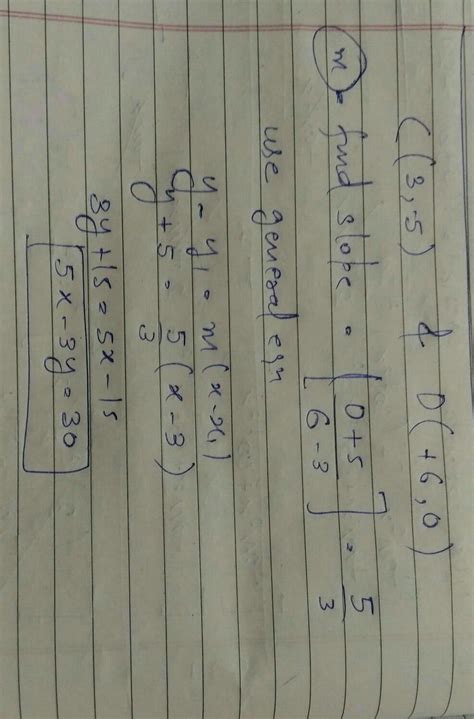 C(3,-5) & D(+6,0)
m = find slope = [0+5 / 6-3] = 5/3
use general eqn
y - y₁ = m(x-x₁)
y + 5 = 5/3 (x - 3)
3y + 15 = 5x - 15
5x - 3y = 30